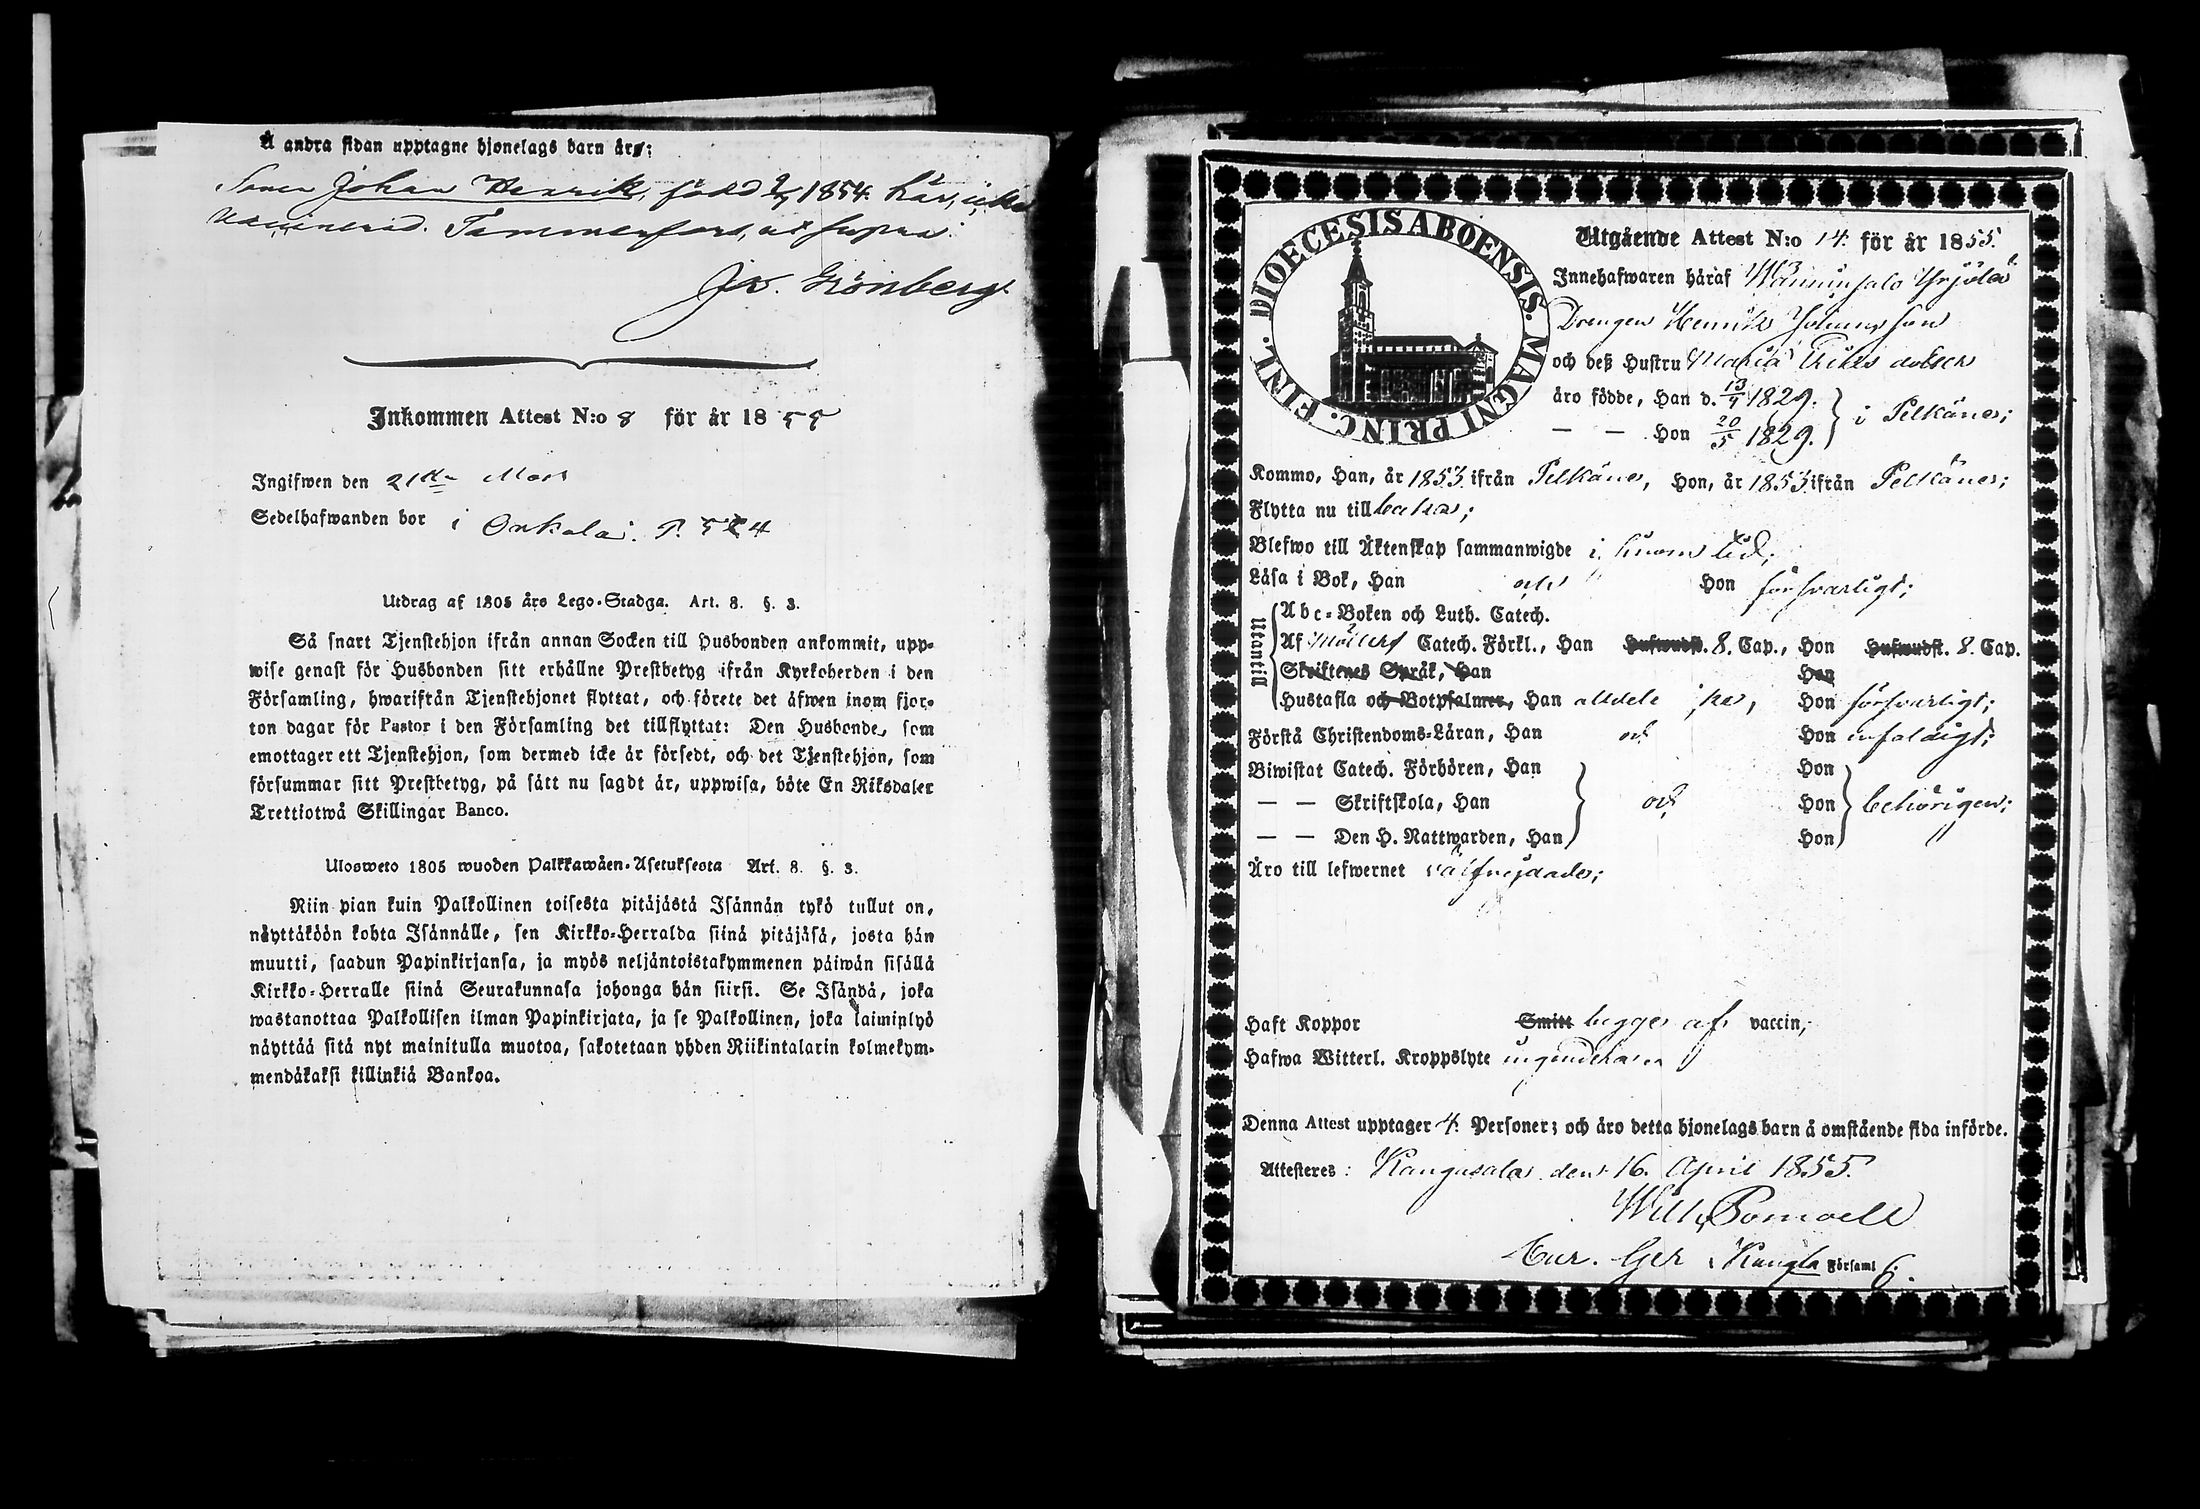 Å andra sidan upptagne hjonelags barn äro:
Sonen Johan Henrik, född 1854. här, icke
vaccinerad. Tammerfors, ut supra.
Grönberg.
Inkommen Attest N:o 8 för år 18
Ingifwen den 21 Mars
Sedelhafwanden bor i Onkala.
Utdrag af 1805 års Lego-Stadga. Art. 8. §. 3.
Så snart Tjenstehjon ifrån annan Socken till Husbonden ankommit, upp-
wise genast för Husbonden sitt erhållne Prestbetyg ifrån Kyrkoherden i den
Församling, hwarifrån Tjenstehjonet flyttat, och förete det äfwen inom fjor-
ton dagar för Pastor i den Församling det tillflyttat: Den Husbonde, som
emottager ett Tjenstehjon, som dermed icke är försedt, och det Tjenstehjon, som
försummar sitt Prestbetyg, på sätt nu sagdt är, uppwisa, böte En Riksdaler
Trettiotwå Skillingar Banco.
Ulosweto 1805 wuoden Palkkawäen-Asetuksesta Art. 8. §. 3.
Niin pian kuin Palkollinen toisesta pitäjästä Isännän tykö tullut on,
näyttäköön kohta Isännälle, sen Kirkko-Herralda siinä pitäjäsä, josta hän
muutti, saadun Papinkirjansa, ja myös neljäntoistakymmenen päiwän sisällä
Kirkko-Herralle siinä Seurakunnasa johonga hän siirsi. Se Isändä, joka
wastanottaa Palkollisen ilman Papinkirjata, ja se Palkollinen, joka laiminlyö
näyttää sitä nyt mainitulla muotoa, sakotetaan yhden Riikintalarin kolmekym-
mendäkaksi killinkiä Bankoa.
DIOECESIS ABOENSIS. MAGNI PRINC. FINL.
Utgående Attest N:o 14. för år 1855.
Innehafwaren häraf Yrjölä
Drengen Henrik Johansson
och deß Hustru Maria Eriks dotter
äro födde, Han d. 1829.
— — Hon 20/5 1829. } i Pelkäne;
Kommo, Han, år 1853 ifrån Pelkäne, Hon, år 1853 ifrån Pelkäne;
Flytta nu till
Blefwo till Äktenskap sammanwigde i sinom tid;
Läsa i Bok, Han och Hon försvarligt;
Utantill
Abc-Boken och Luth. Catech.
Af Möllers Catech. Förkl., Han Hufwudst. 8. Cap., Hon Hufwudst. 8. Cap.
Skriftenes Språk, Han Hon
Hustafla och Botpsalmer, Han alldeles icke, Hon försvarligt;
Förstå Christendoms-Läran, Han och Hon enfaldigt;
Biwistat Catech. Förhören, Han Hon
— — Skriftskola, Han och Hon behörigen;
— — Den H. Nattwarden, Han Hon
Äro till lefwernet välfrejdade;
Haft Koppor Smitt begge af vaccin;
Hafwa Witterl. Kroppslyte ingendera
Denna Attest upptager 4. Personer; och äro detta hjonelags barn å omstående sida införde.
Attesteras: Kangasala den 16. April 1855.
Wilh. Pomoell
Församl 6.